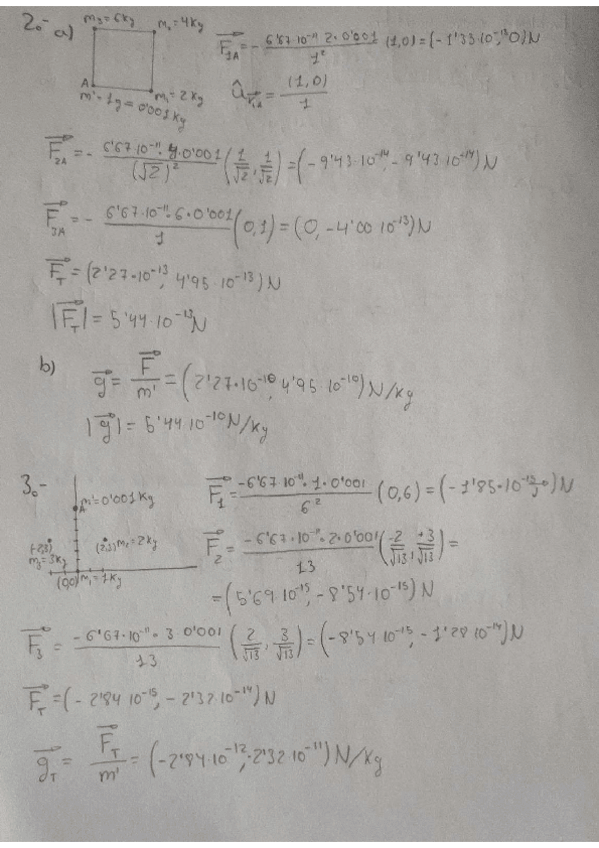 2.- a) m₃=6kg m₂=4kg
A m₁=2kg
m'=1g=0'001kg
F₁A=- 6'67·10⁻¹¹·2·0'001/1² (1,0)=(-1'33·10⁻¹³,0)N
û_r₁A= (1,0)/1
F₂A=- 6'67·10⁻¹¹·4·0'001/(√2)² (1/√2, 1/√2)=(-9'43·10⁻¹⁴,-9'43·10⁻¹⁴)N
F₃A=- 6'67·10⁻¹¹·6·0'001/1 (0,1)=(0,-4'00·10⁻¹³)N
F_T=(2'27·10⁻¹³, 4'95·10⁻¹³)N
|F_T|=5'44·10⁻¹³N
b) g= F/m' =(2'27·10⁻¹⁰, 4'95·10⁻¹⁰)N/kg
|g|=5'44·10⁻¹⁰N/kg
3.-
A m'=0'001kg
(-2,3) m₃=3kg (2,3) m₂=2kg
(0,0) m₁=1kg
F₁= -6'67·10⁻¹¹·1·0'001/6² (0,6)=(-1'85·10⁻¹⁵,0)N
F₂= -6'67·10⁻¹¹·2·0'001/13 (-2/√13, +3/√13)=
=(5'69·10⁻¹⁵,-8'54·10⁻¹⁵)N
F₃= -6'67·10⁻¹¹·3·0'001/13 (2/√13, 3/√13)=(-8'54·10⁻¹⁵,-1'28·10⁻¹⁴)N
F_T=(-2'84·10⁻¹⁵,-2'32·10⁻¹⁴)N
g_T= F_T/m' =(-2'84·10⁻¹²,-2'32·10⁻¹¹)N/kg